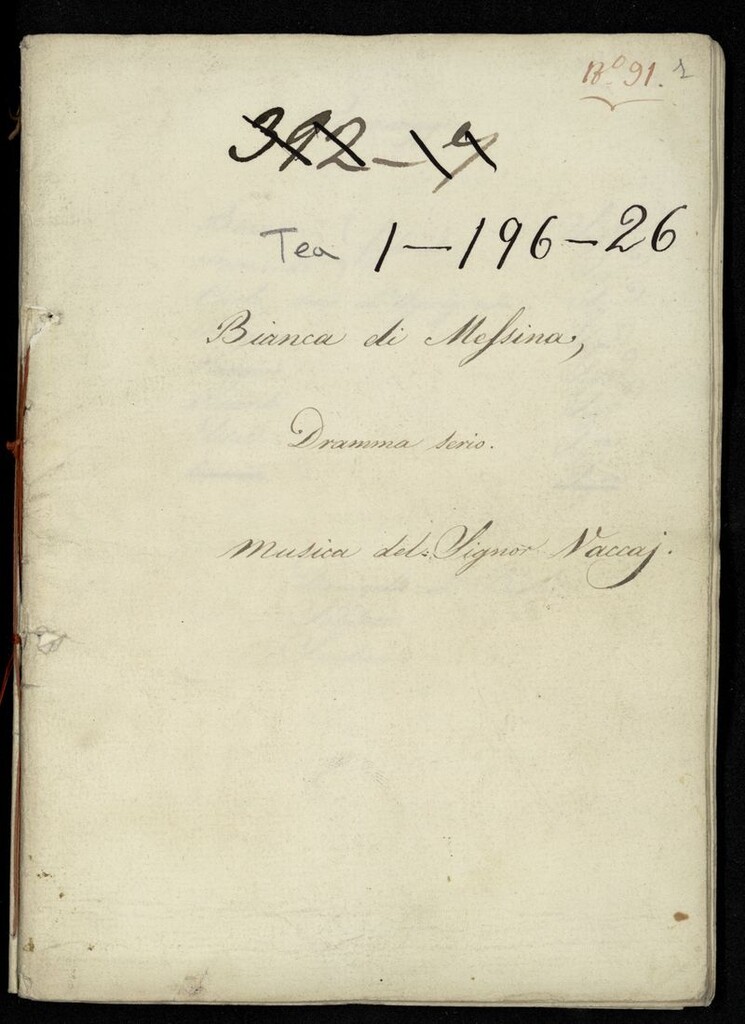 Nº 91. 2
392-9
Tea 1-196-26
Bianca di Messina,
Dramma serio.
Musica del Signor Vaccaj.